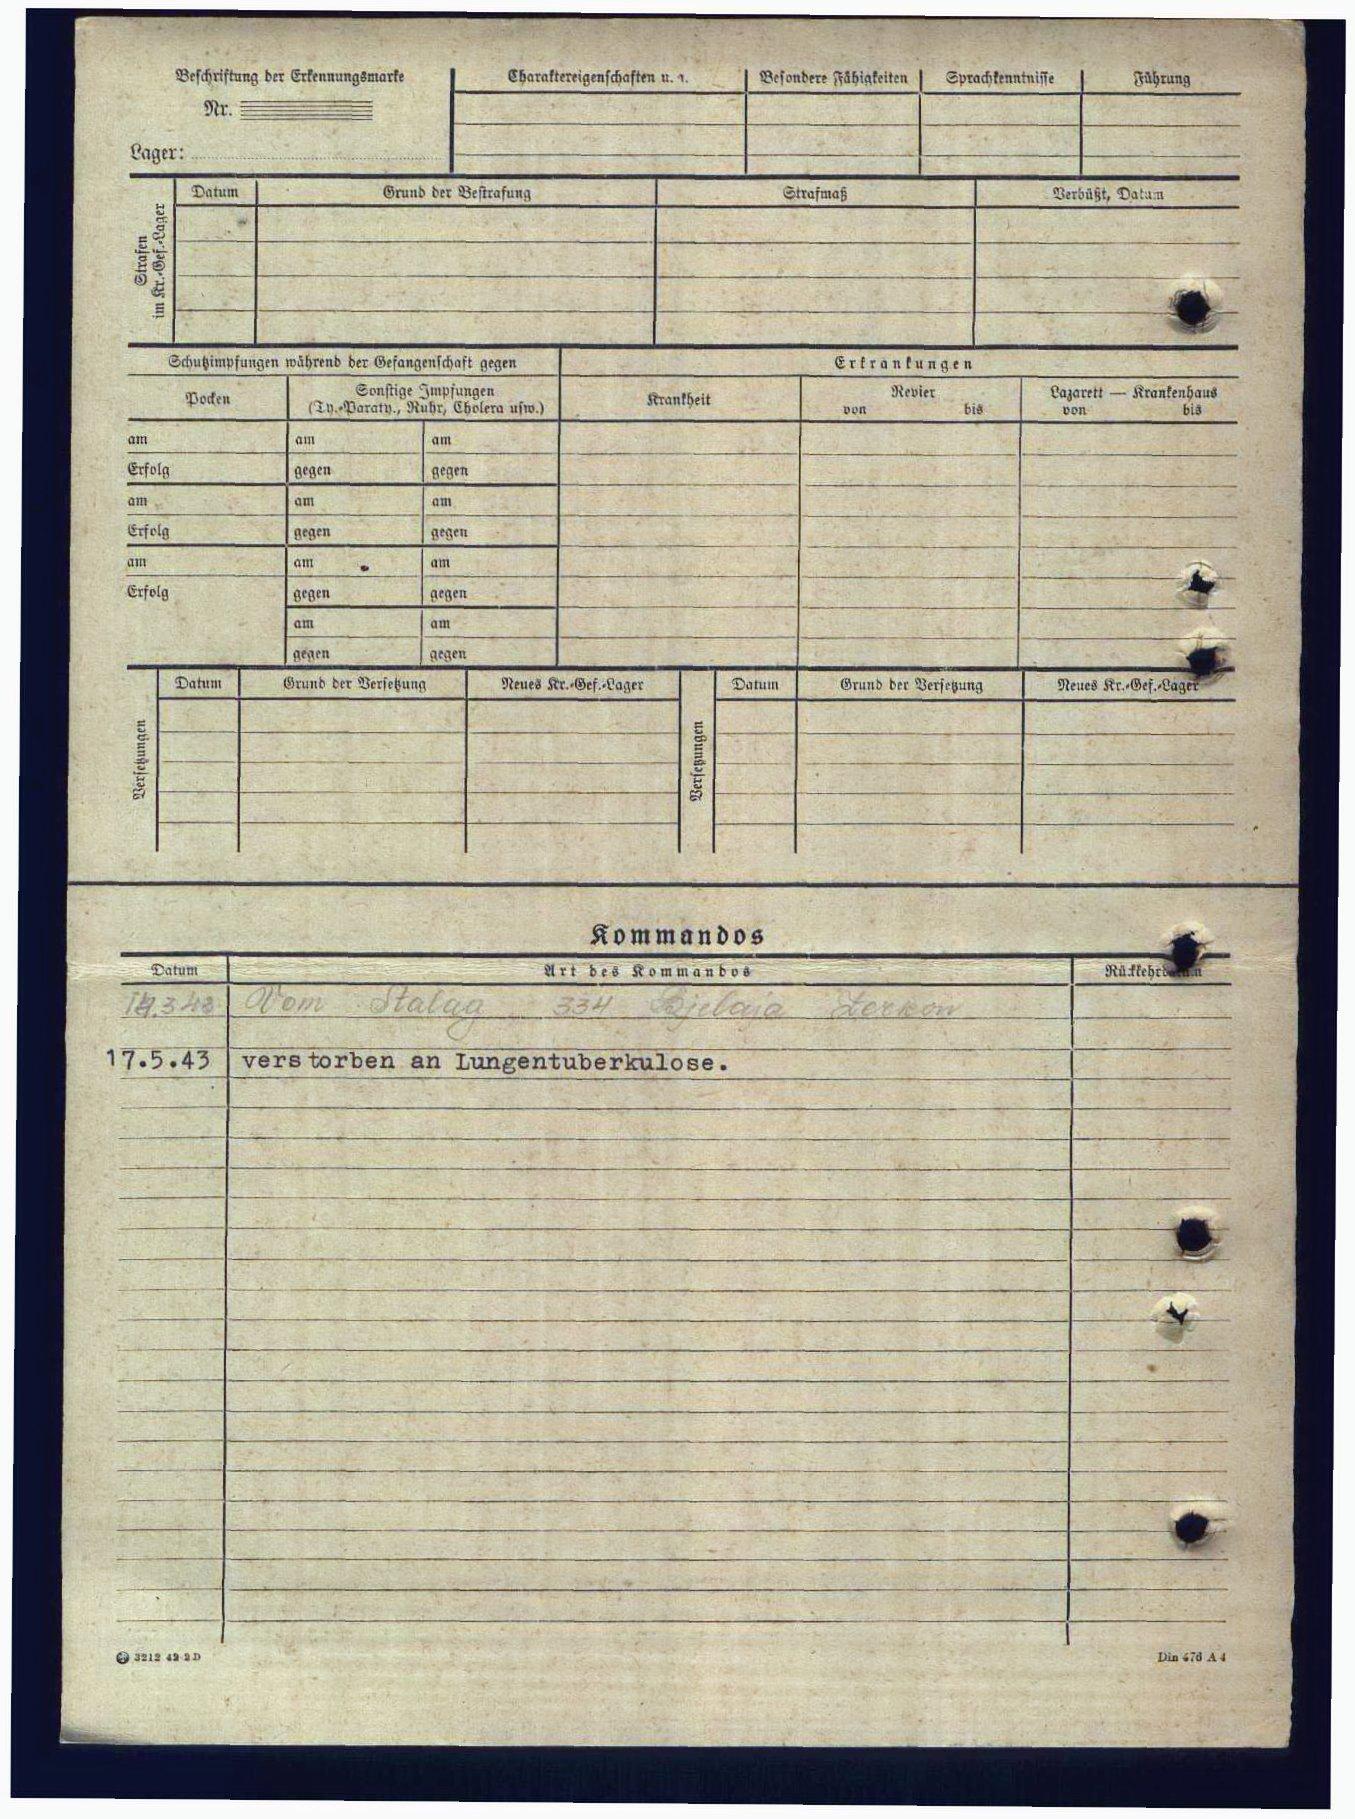 Beschriftung der Erkennungsmarke
Nr.
Lager:
Charaktereigenschaften u.
Besondere Fähigkeiten
Sprachkenntnisse
Führung
Strafen
im Kr.-Gef.-Lager
Datum
Grund der Bestrafung
Strafmaß
Verbüßt, Datum
Schutzimpfungen während der Gefangenschaft gegen
Erkrankungen
Pocken
Sonstige Impfungen
(Ty.-Paraty., Ruhr, Cholera usw.)
Krankheit
Revier
von bis
Lazarett — Krankenhaus
von bis
am am am
Erfolg gegen gegen
am am am
Erfolg gegen gegen
am am am
Erfolg gegen gegen
am am
gegen gegen
Versetzungen
Datum Grund der Versetzung Neues Kr.-Gef.-Lager
Versetzungen
Datum Grund der Versetzung Neues Kr.-Gef.-Lager
Kommandos
Datum Art des Kommandos Rückkehrdatum
Vom Stalag 334 Bjelaja Zerkow
17.5.43 verstorben an Lungentuberkulose.
3212 42 2D
Din 476 A 4